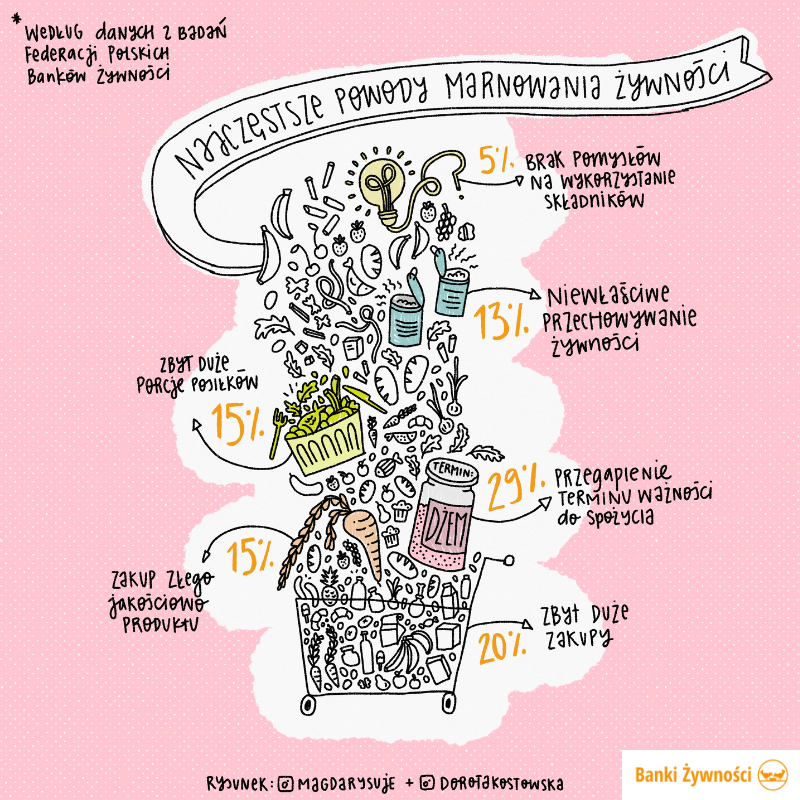 * WEDŁUG danych z BADAŃ
Federacji Polskich
Banków Żywności
Najczęstsze powody marnowania żywności
5% Brak pomysłów
na wykorzystanie
składników
13% Niewłaściwe
przechowywanie
żywności
Zbyt duże
porcje posiłków
15%
TERMIN:
DŻEM
29% Przegapienie
terminu ważności
do spożycia
15%
Zakup złego
jakościowo
produktu
20% Zbyt duże
zakupy
Rysunek: magdarysuje + dorotakostowska
Banki Żywności